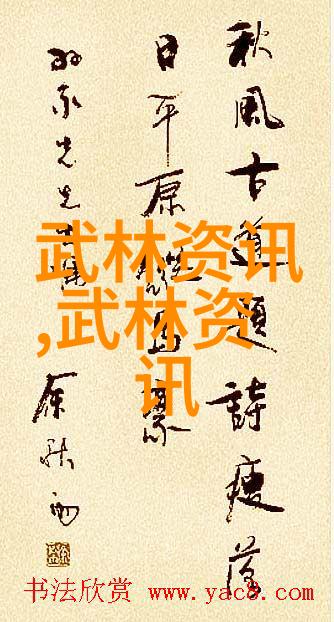 秋風古道題詩瘦落
日平原縱馬豪
先生
余秋雨
武林资讯
,武林资
讯
书法欣赏 www.yac8.com